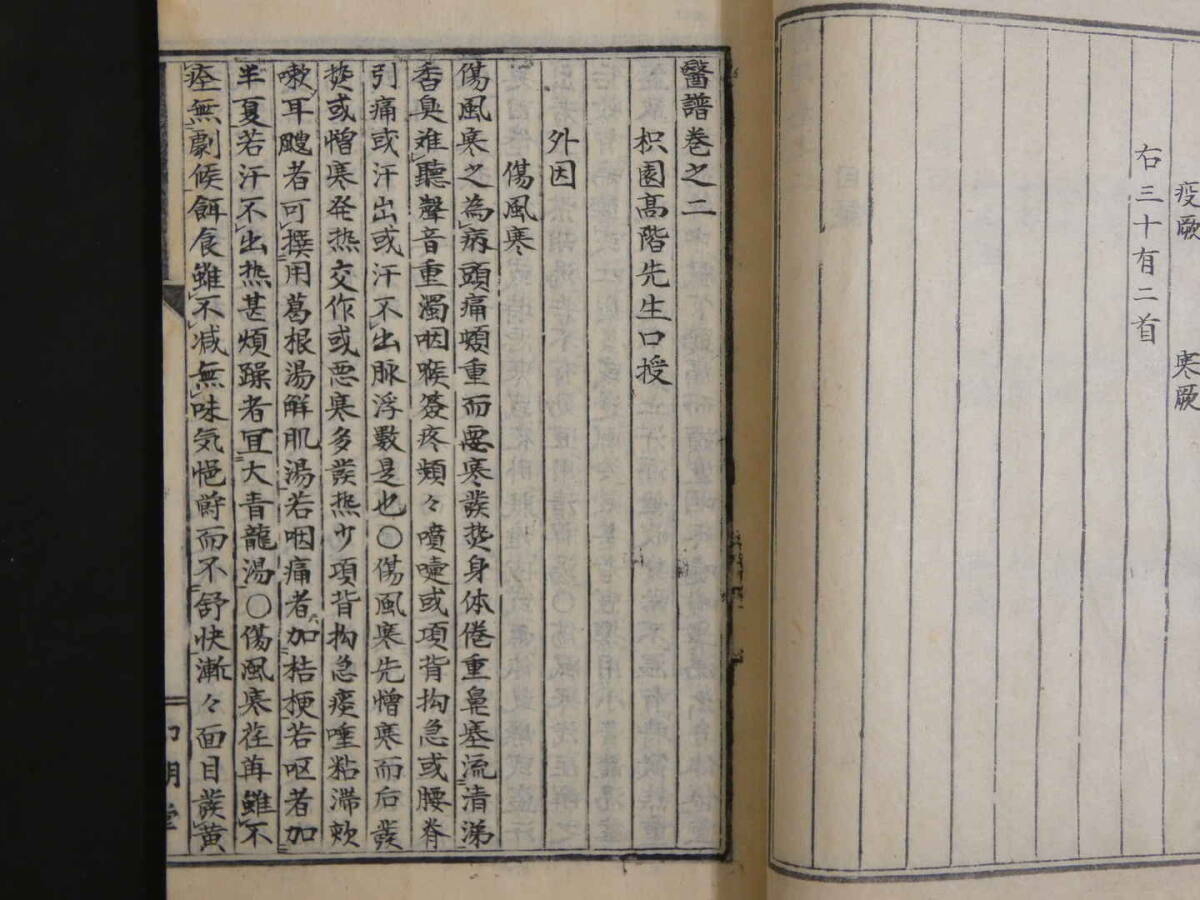 疫厥　寒厥
右三十有二首
醫譜巻之二
枳園髙階先生口授
外因
傷風寒
傷風寒之為病頭痛頬重而惡寒發热身体倦重鼻塞流清涕
香臭难聽聲音重濁咽喉簽疼頬々噴嚏或項背拘急或腰脊
引痛或汗出或汗不出脉浮數是也○傷風寒先憎寒而后發
热或憎寒発热交作或悪寒多發热少項背拘急痰唾粘滞欬
嗽耳颼者可撰用葛根湯解肌湯若咽痛者加桔梗若呕者加
半夏若汗不出热甚煩躁者宜大青龍湯○傷風寒荏苒雖不
痊無劇候餌食雖不减無味気悒欝而不舒快漸々面目發黄
明堂